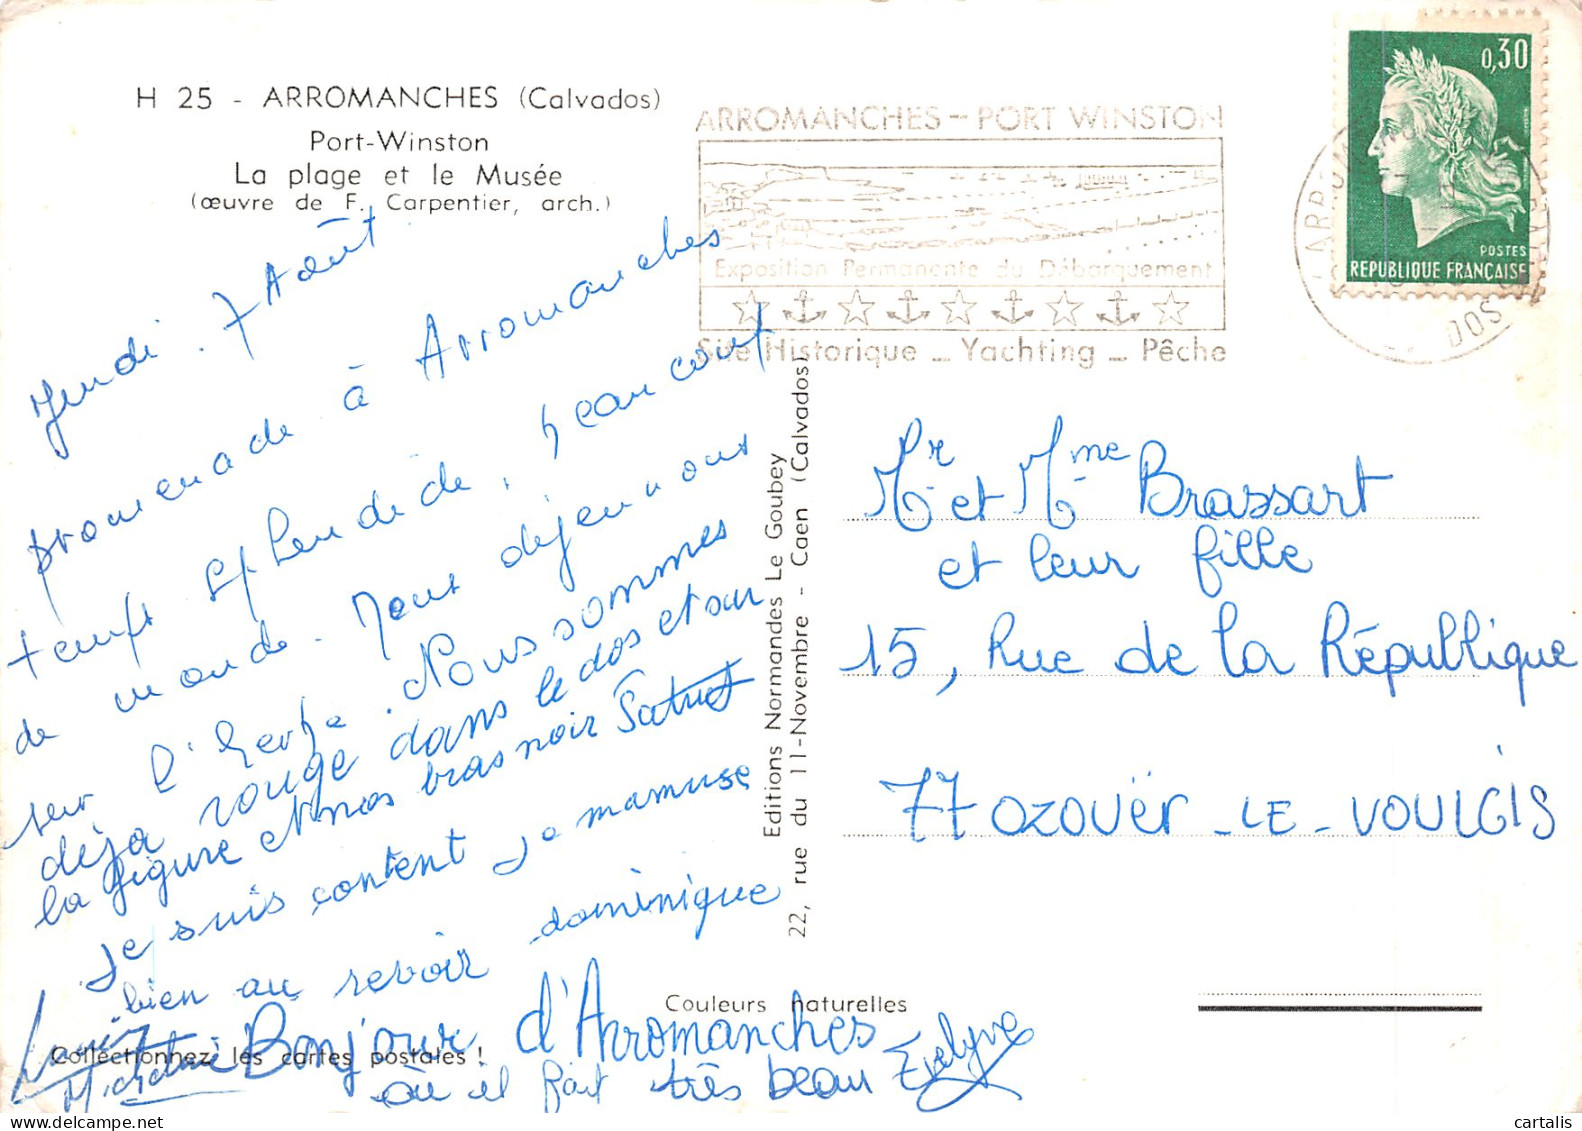 H 25 - ARROMANCHES (Calvados)
Port-Winston
La plage et le Musée
(œuvre de F. Carpentier, arch.)
ARROMANCHES - PORT WINSTON
Exposition Permanente du Débarquement
Site Historique - Yachting - Pêche
0,30
POSTES
REPUBLIQUE FRANÇAISE
DOS
Jeudi. 7 Août.
promenade à Arromanches
temps splendide, beaucoup
de monde. Nous déjeunons
sur l'herbe. Nous sommes
déja rouge dans le dos et sur
la figure et nos bras noir
je suis content je mamuse
bien au revoir dominique
Bonjour d'Arromanches
où il fait très beau Evelyne
Collectionnez les cartes postales !
Couleurs naturelles
Editions Normandes Le Goubey
22, rue du 11-Novembre - Caen (Calvados)
Mr et Mme Brassart
et leur fille
15, Rue de la République
77 OZOUËR-LE-VOULGIS
cartalis